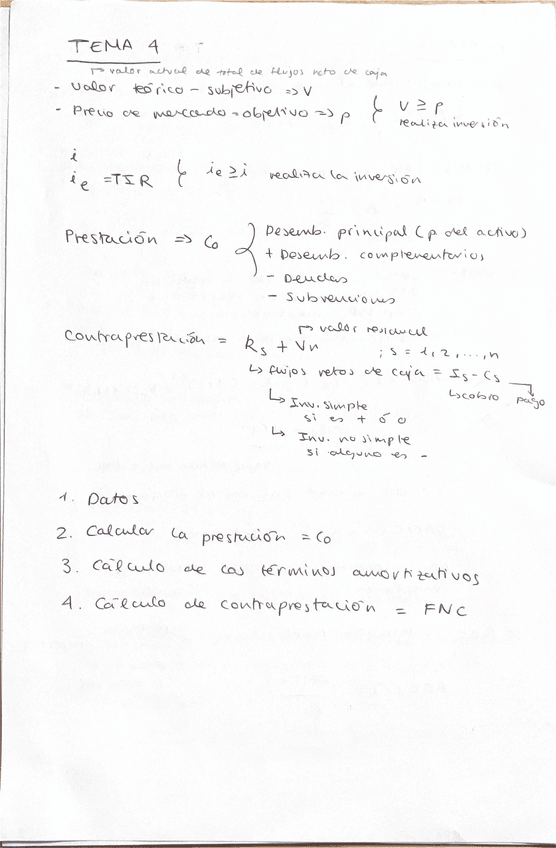 TEMA 4
↱ valor actual de total de flujos neto de caja
- Valor teórico - subjetivo => V
- Precio de mercado - objetivo => p { V ≥ p
realiza inversión
i
ie = TIR { ie ≥ i realiza la inversión
Prestación => Co { Desemb. principal (p del activo)
+ Desemb. complementarios
- Deudas
- Subvenciones
Contraprestación = Rs + Vn ↱ valor residual
; s = 1, 2, ..., n
↳ flujos netos de caja = Is - Cs
↳ cobro pago
↳ Inv. simple
si es + ó 0
↳ Inv. no simple
si alguno es -
1. Datos
2. Calcular la prestación = Co
3. Cálculo de los términos amortizativos
4. Cálculo de contraprestación = FNC